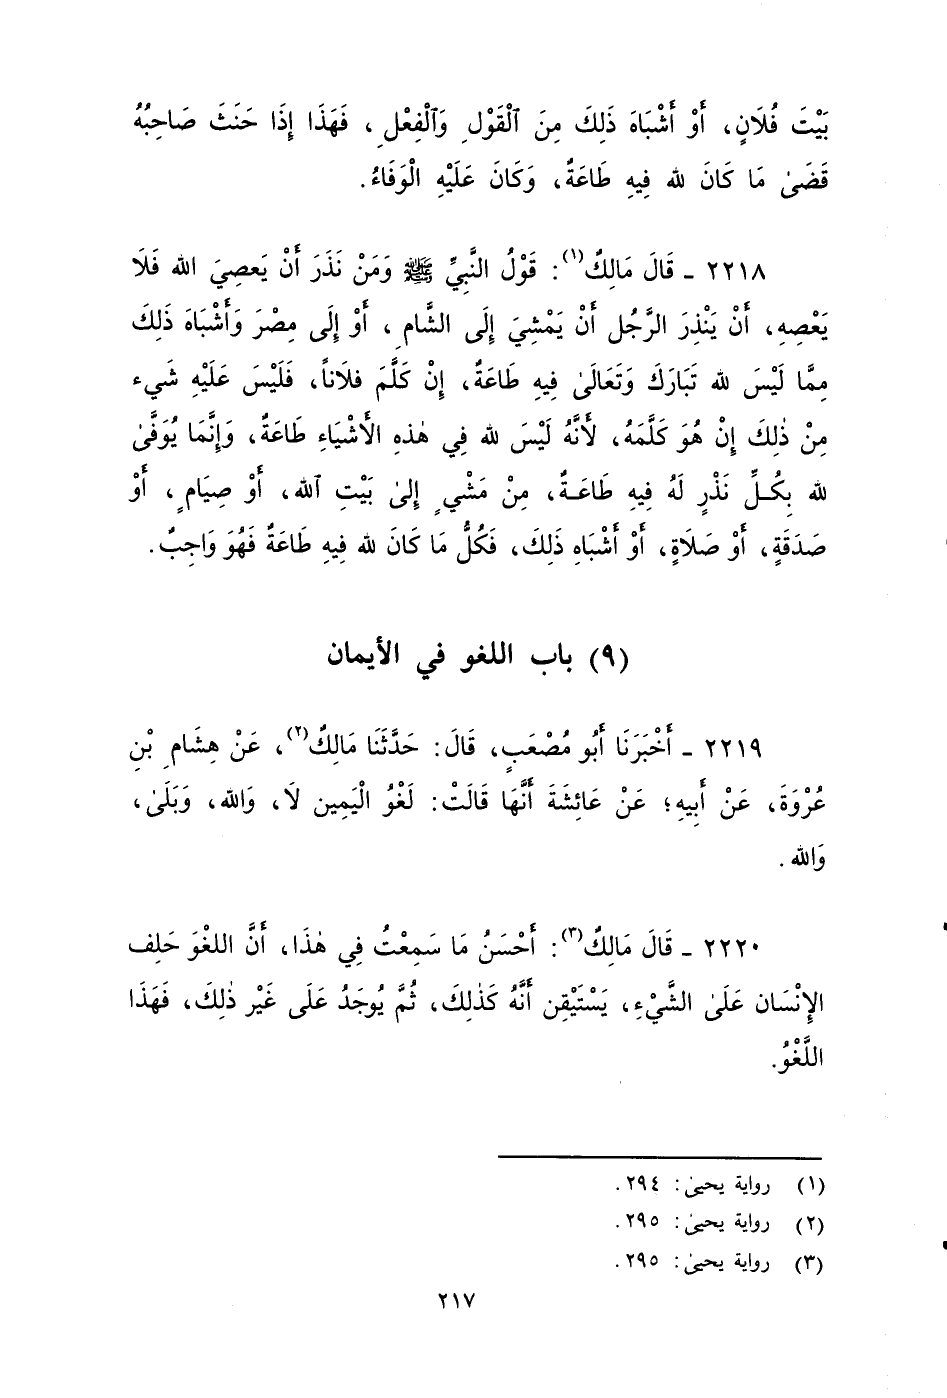 بَيْتَ فُلَانٍ، أَوْ أَشْبَاهَ ذَلِكَ مِنَ ٱلْقَوْلِ وَٱلْفِعْلِ، فَهَذَا إِذَا حَنَثَ صَاحِبُهُ
قَضَىٰ مَا كَانَ لله فِيهِ طَاعَةٌ، وَكَانَ عَلَيْهِ الْوَفَاءُ.
٢٢١٨ ـ قَالَ مَالِكٌ(١): قَوْلُ النَّبِيِّ ﷺ وَمَنْ نَذَرَ أَنْ يَعصِيَ الله فَلَا
يَعْصِهِ، أَنْ يَنْذِرَ الرَّجُل أَنْ يَمْشِيَ إِلَى الشَّامِ، أَوْ إِلَى مِصْرَ وَأَشْبَاهَ ذَلِكَ
مِمَّا لَيْسَ لله تَبَارَكَ وَتَعَالَىٰ فِيهِ طَاعَةٌ، إِنْ كَلَّمَ فلَاناً، فَلَيْسَ عَلَيْهِ شَيء
مِنْ ذٰلِكَ إِنْ هُوَ كَلَّمَهُ، لأَنَّهُ لَيْسَ لله فِي هٰذهِ الأَشْيَاءِ طَاعَةٌ، وَإِنَّمَا يُوَفَّىٰ
لله بِكُـلِّ نَذْرٍ لَهُ فِيهِ طَاعَـةٌ، مِنْ مَشْيٍ إِلىٰ بَيْتِ ٱلله، أَوْ صِيَامٍ، أَوْ
صَدَقَةٍ، أَوْ صَلَاةٍ، أَوْ أَشْبَاهِ ذَلِكَ، فَكُلُّ مَا كَانَ لله فِيهِ طَاعَةٌ فَهُوَ وَاجِبٌ.
(٩) باب اللغو في الأيمان
٢٢١٩ ـ أَخْبَرَنَا أَبُو مُصْعَبٍ، قَالَ: حَدَّثَنَا مَالِكٌ(٢)، عَنْ هِشَامِ بْنِ
عُرْوَةَ، عَنْ أَبِيهِ؛ عَنْ عَائِشَةَ أَنَّهَا قَالَتْ: لَغْوُ الْيَمِين لَا، وَالله، وَبَلَىٰ،
وَالله.
٢٢٢٠ ـ قَالَ مَالِكٌ(٣): أَحْسَنُ مَا سَمِعْتُ فِي هٰذَا، أَنَّ اللغْوَ حَلِف
الإِنْسَان عَلَىٰ الشَّيْءِ، يَسْتَيْقِن أَنَّهُ كَذٰلِكَ، ثُمَّ يُوجَدُ عَلَى غَيْر ذٰلِكَ، فَهَذَا
اللَّغْوُ.
(١) رواية يحيىٰ: ٢٩٤.
(٢) رواية يحيىٰ: ٢٩٥.
(٣) رواية يحيىٰ: ٢٩٥.
٢١٧